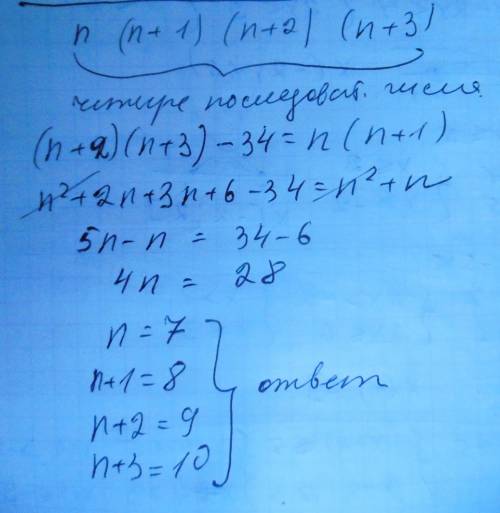 n (n+1) (n+2) (n+3)
четыре последоват. числа
(n+2)(n+3)-34=n(n+1)
n²+2n+3n+6-34=n²+n
5n-n = 34-6
4n = 28
n=7
n+1=8
n+2=9
n+3=10
ответ